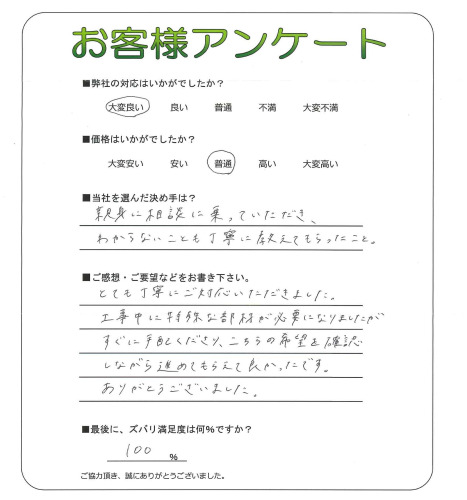 お客様アンケート
■弊社の対応はいかがでしたか？
大変良い 良い 普通 不満 大変不満
■価格はいかがでしたか？
大変安い 安い 普通 高い 大変高い
■当社を選んだ決め手は？
親身に相談に乗っていただき、
わからないことも丁寧に教えてもらったこと。
■ご感想・ご要望などをお書き下さい。
とても丁寧にご対応いただきました。
工事中に特殊な部材が必要になりましたが
すぐに手配くださり、こちらの希望を確認
しながら進めてもらえて良かったです。
ありがとうございました。
■最後に、ズバリ満足度は何%ですか？
100 %
ご協力頂き、誠にありがとうございました。